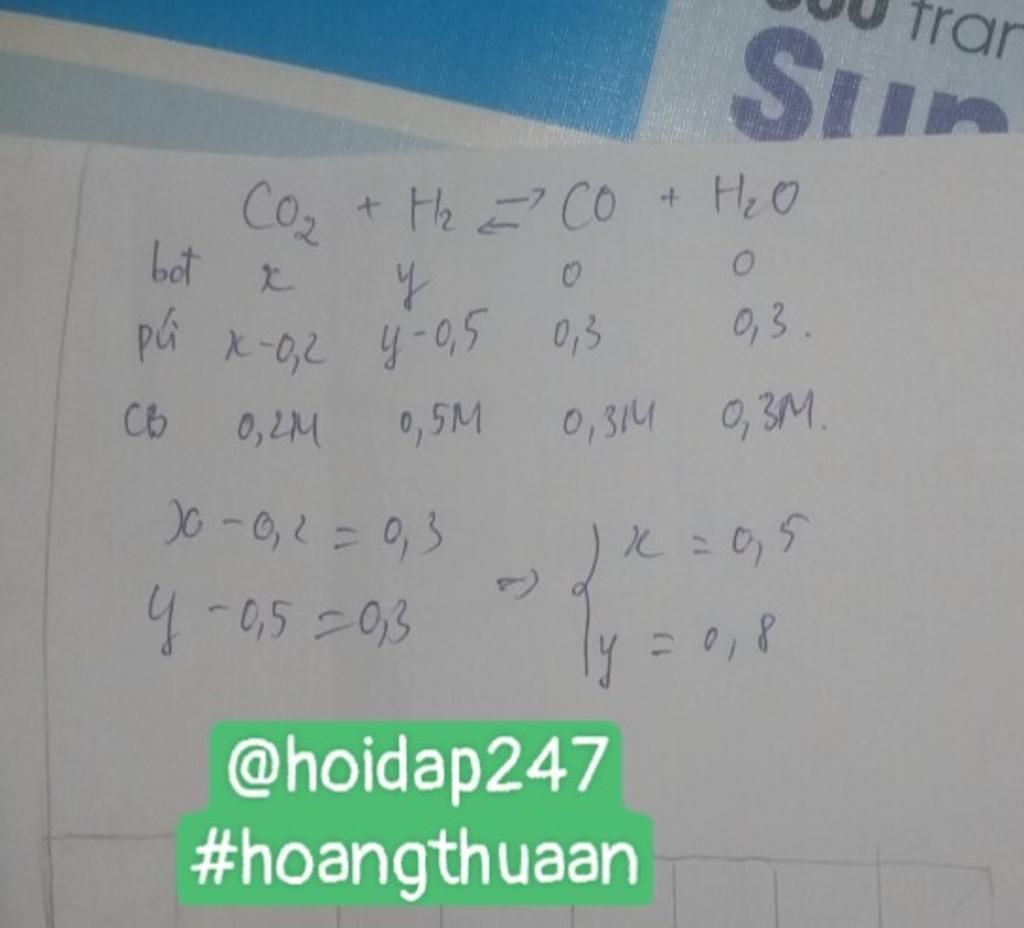 tran
Sup
CO₂ + H₂ ⇌ CO + H₂O
bđ x y 0 0
pứ x-0,2 y-0,5 0,3 0,3.
CB 0,2M 0,5M 0,3M 0,3M.
x - 0,2 = 0,3 ⇒ { x = 0,5
y - 0,5 = 0,3 y = 0,8
@hoidap247
#hoangthuaan